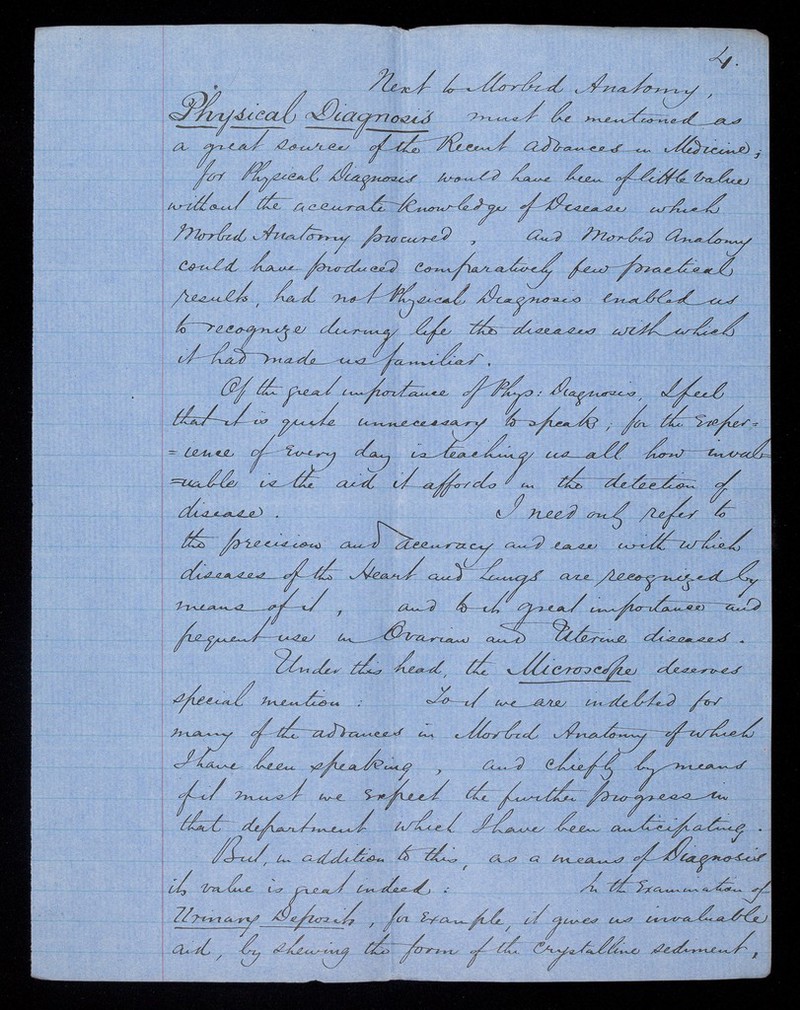 4.
Next to Morbid Anatomy,
Physical Diagnosis must be mentioned as
a great source of the Recent advances in Medicine;
for Physical Diagnosis would have been of little value
without the accurate knowledge of Disease which
Morbid Anatomy procured, and Morbid Anatomy
could have produced comparatively few practical
results, had not Physical Diagnosis enabled us
to recognize during life the diseases with which
it had made us familiar.
Of the great importance of Phys: Diagnosis, I feel
that it is quite unnecessary to speak; for the exper=
=ience of every day is teaching us all how inval=
=uable is the aid it affords in the detection of
disease. I need only refer to
the precision and accuracy and ease with which
diseases of the Heart and Lungs are recognized by
means of it, and to its great importance and
frequent use in Ovarian and Uterine diseases.
Under this head, the Microscope deserves
special mention: To it we are indebted for
many of the advances in Morbid Anatomy of which
I have been speaking, and chiefly by means
of it must we expect the further progress in
that department which I have been anticipating.
But, in addition to this, as a means of Diagnosis
its value is great indeed: In the Examination of
Urinary Deposits, for example, it gives us invaluable
aid, by shewing the form of the crystalline sediment,